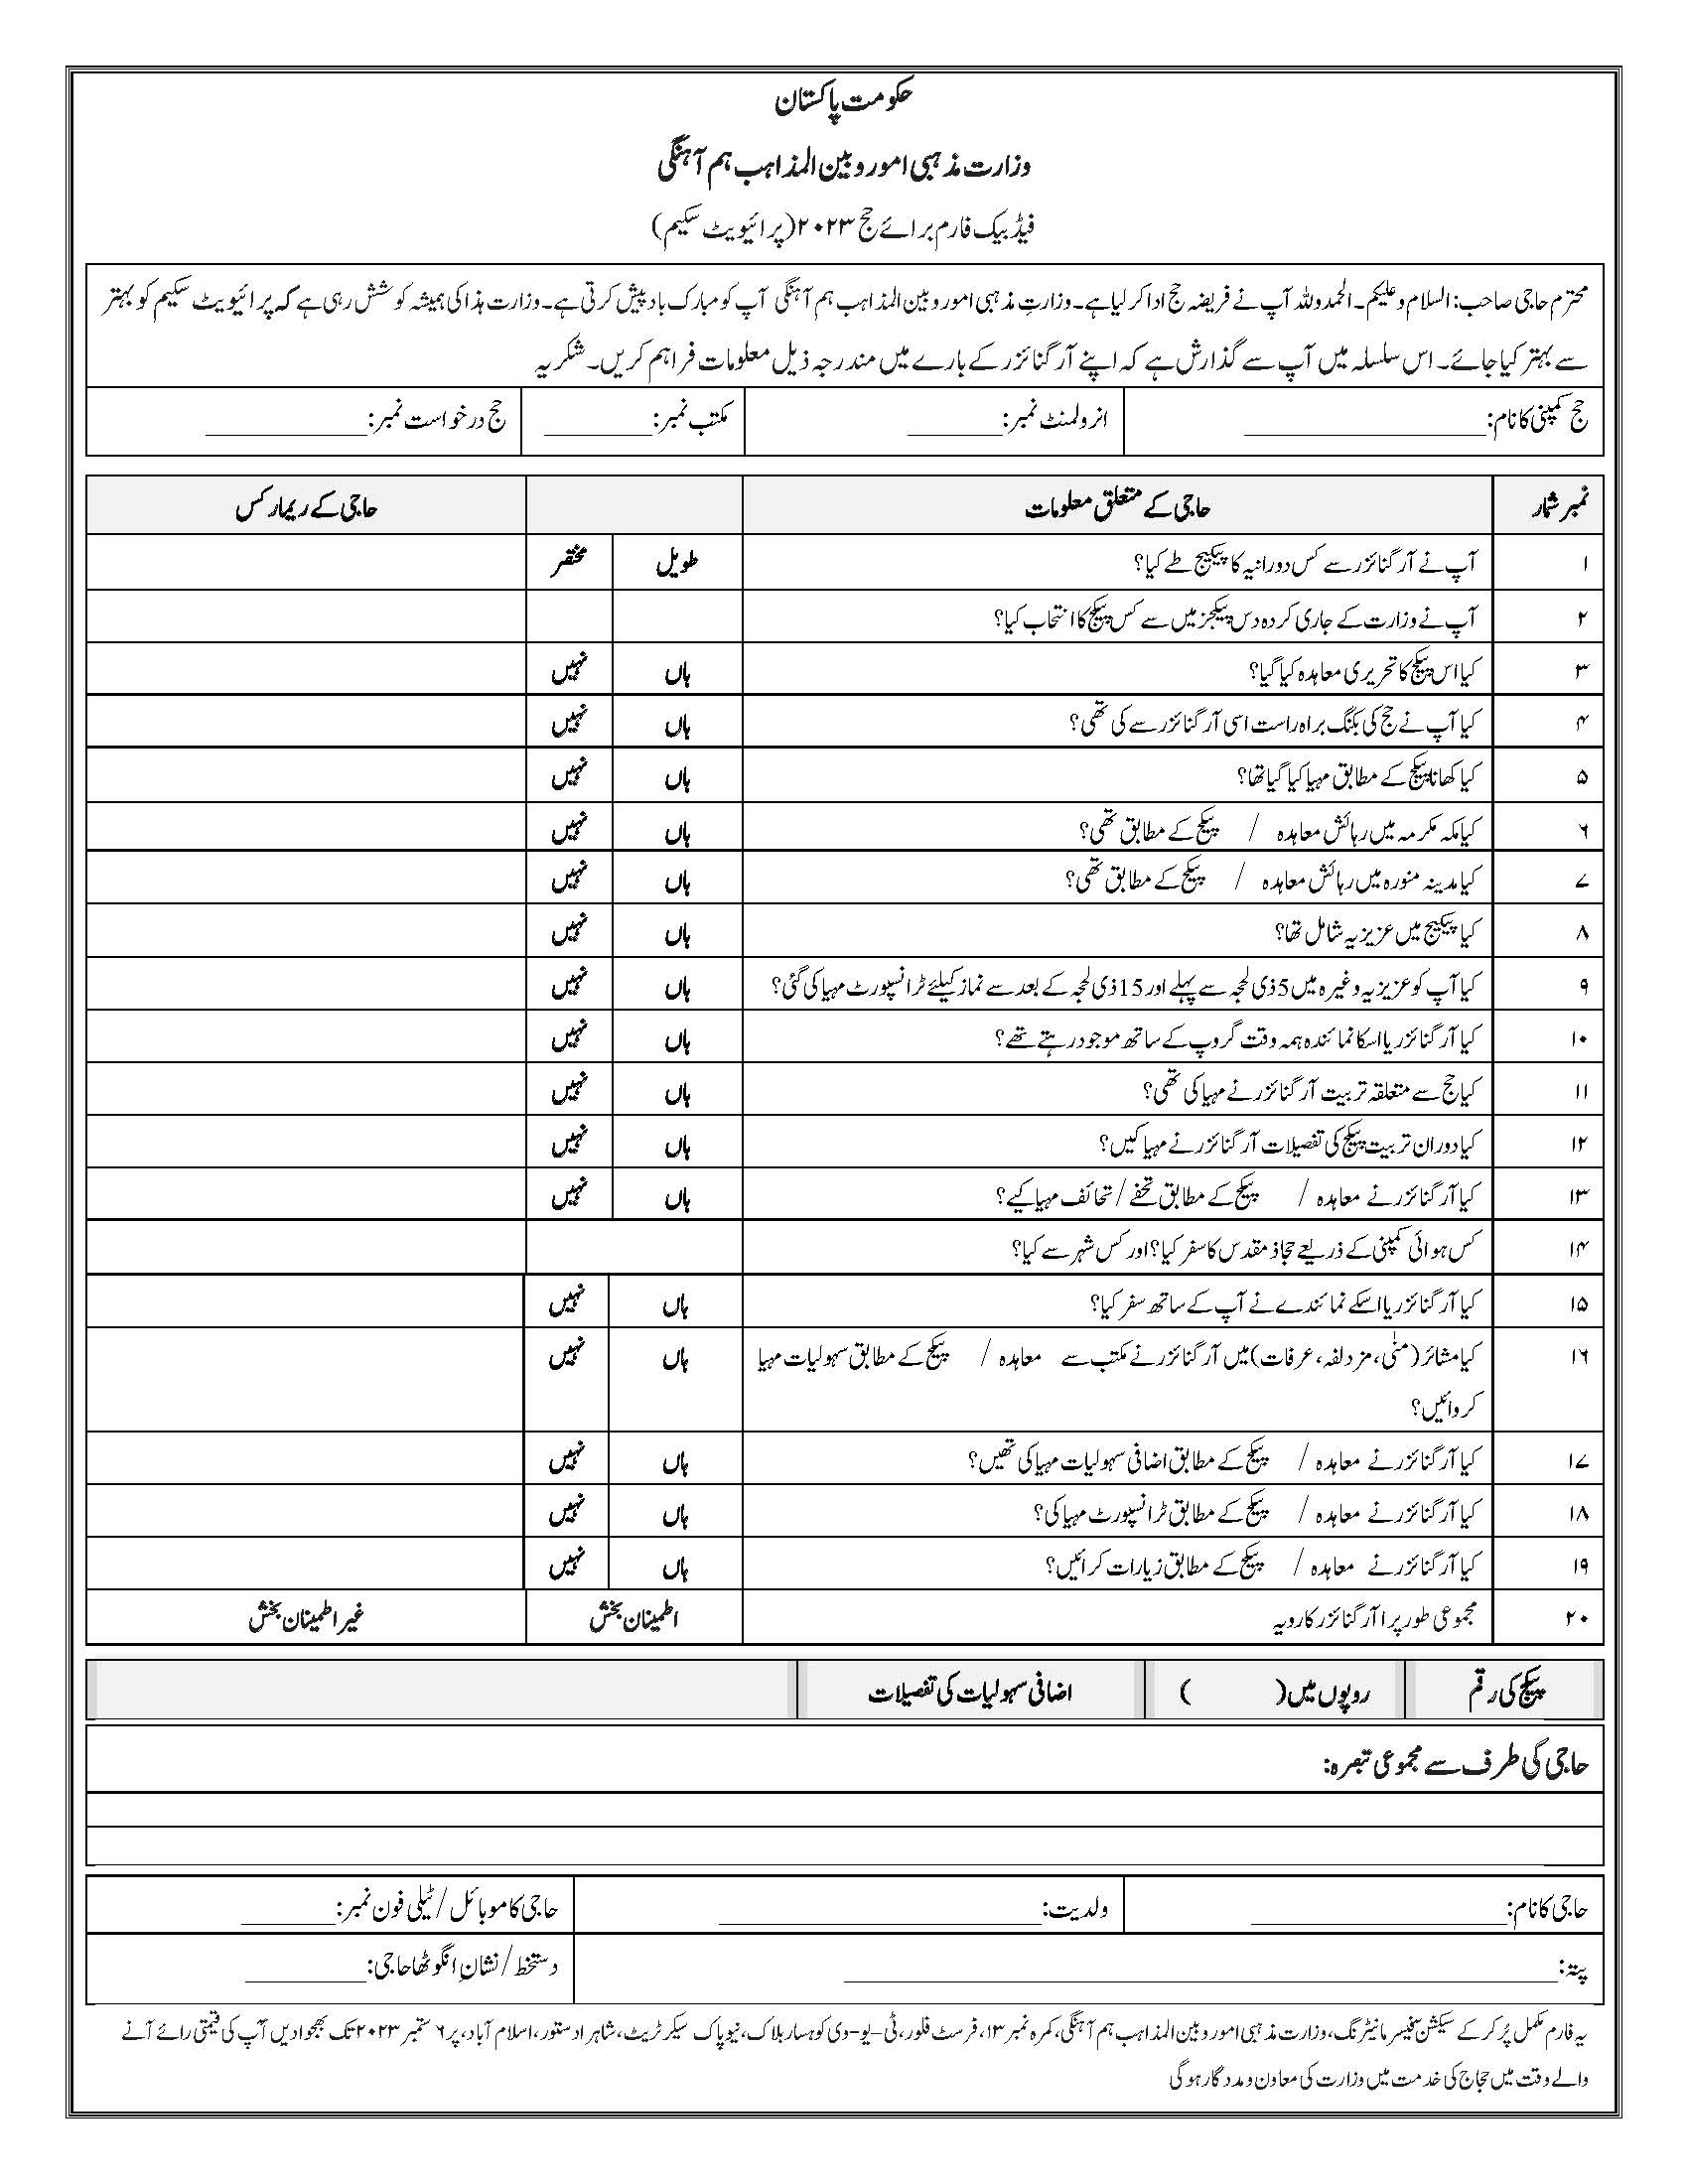 حکومت پاکستان
وزارت مذہبی امور و بین المذاہب ہم آہنگی
فیڈ بیک فارم برائے حج ۲۰۲۳ (پرائیویٹ سکیم)
محترم حاجی صاحب: السلام و علیکم۔ الحمد وللہ آپ نے فریضہ حج ادا کر لیا ہے۔ وزارتِ مذہبی امور و بین المذاہب ہم آہنگی آپ کو مبارک باد پیش کرتی ہے۔ وزارت ہذا کی ہمیشہ کوشش رہی ہے کہ پرائیویٹ سکیم کو بہتر
سے بہتر کیا جائے۔ اس سلسلہ میں آپ سے گذارش ہے کہ اپنے آرگنائزر کے بارے میں مندرجہ ذیل معلومات فراہم کریں۔ شکریہ
حج کمپنی کا نام: ____________ انرولمنٹ نمبر: ____________ مکتب نمبر: ____________ حج درخواست نمبر: ____________
نمبر شمار حاجی کے متعلق معلومات حاجی کے ریمارکس
۱ آپ نے آرگنائزر سے کس دورانیہ کا پیکیج طے کیا؟ طویل مختصر
۲ آپ نے وزارت کے جاری کردہ دس پیکجز میں سے کس پیکج کا انتخاب کیا؟
۳ کیا اس پیکج کا تحریری معاہدہ کیا گیا؟ ہاں نہیں
۴ کیا آپ نے حج کی بکنگ براہ راست اسی آرگنائزر سے کی تھی؟ ہاں نہیں
۵ کیا کھانا پیکج کے مطابق مہیا کیا گیا تھا؟ ہاں نہیں
۶ کیا مکہ مکرمہ میں رہائش معاہدہ / پیکج کے مطابق تھی؟ ہاں نہیں
۷ کیا مدینہ منورہ میں رہائش معاہدہ / پیکج کے مطابق تھی؟ ہاں نہیں
۸ کیا پیکیج میں عزیزیہ شامل تھا؟ ہاں نہیں
۹ کیا آپ کو عزیزیہ وغیرہ میں 5 ذی لحجہ سے پہلے اور 15 ذی لحجہ کے بعد سے نماز کیلئے ٹرانسپورٹ مہیا کی گئی؟ ہاں نہیں
۱۰ کیا آرگنائزر یا اسکا نمائندہ ہمہ وقت گروپ کے ساتھ موجود رہتے تھے؟ ہاں نہیں
۱۱ کیا حج سے متعلقہ تربیت آرگنائزر نے مہیا کی تھی؟ ہاں نہیں
۱۲ کیا دوران تربیت پیکج کی تفصیلات آرگنائزر نے مہیا کیں؟ ہاں نہیں
۱۳ کیا آرگنائزر نے معاہدہ / پیکج کے مطابق تحفے / تحائف مہیا کیے؟ ہاں نہیں
۱۴ کس ہوائی کمپنی کے ذریعے حجاز مقدس کا سفر کیا؟ اور کس شہر سے کیا؟
۱۵ کیا آرگنائزر یا اسکے نمائندے نے آپ کے ساتھ سفر کیا؟ ہاں نہیں
۱۶ کیا مشائر (منٰی، مزدلفہ، عرفات) میں آرگنائزر نے مکتب سے معاہدہ / پیکج کے مطابق سہولیات مہیا ہاں نہیں
کروائیں؟
۱۷ کیا آرگنائزر نے معاہدہ / پیکج کے مطابق اضافی سہولیات مہیا کی تھیں؟ ہاں نہیں
۱۸ کیا آرگنائزر نے معاہدہ / پیکج کے مطابق ٹرانسپورٹ مہیا کی؟ ہاں نہیں
۱۹ کیا آرگنائزر نے معاہدہ / پیکج کے مطابق زیارات کرائیں؟ ہاں نہیں
۲۰ مجموعی طور پر اآرگنائزر کا رویہ اطمینان بخش غیر اطمینان بخش
پیکج کی رقم روپوں میں ( ) اضافی سہولیات کی تفصیلات
حاجی کی طرف سے مجموعی تبصرہ:
حاجی کا نام: ____________ ولدیت: ____________ حاجی کا موبائل / ٹیلی فون نمبر: ____________
پتہ: ____________ دستخط / نشانِ انگوٹھا حاجی: ____________
یہ فارم مکمل پُر کر کے سیکشن آفیسر مانیٹرنگ، وزارت مذہبی امور و بین المذاہب ہم آہنگی، کمرہ نمبر ۱۳، فرسٹ فلور، ٹی-یو-وی کوہسار بلاک، نیو پاک سیکرٹریٹ، شاہراہ دستور، اسلام آباد، پر ۶ ستمبر ۲۰۲۳ تک بھجوا دیں آپ کی قیمتی رائے آنے
والے وقت میں حجاج کی خدمت میں وزارت کی معاون و مددگار ہو گی